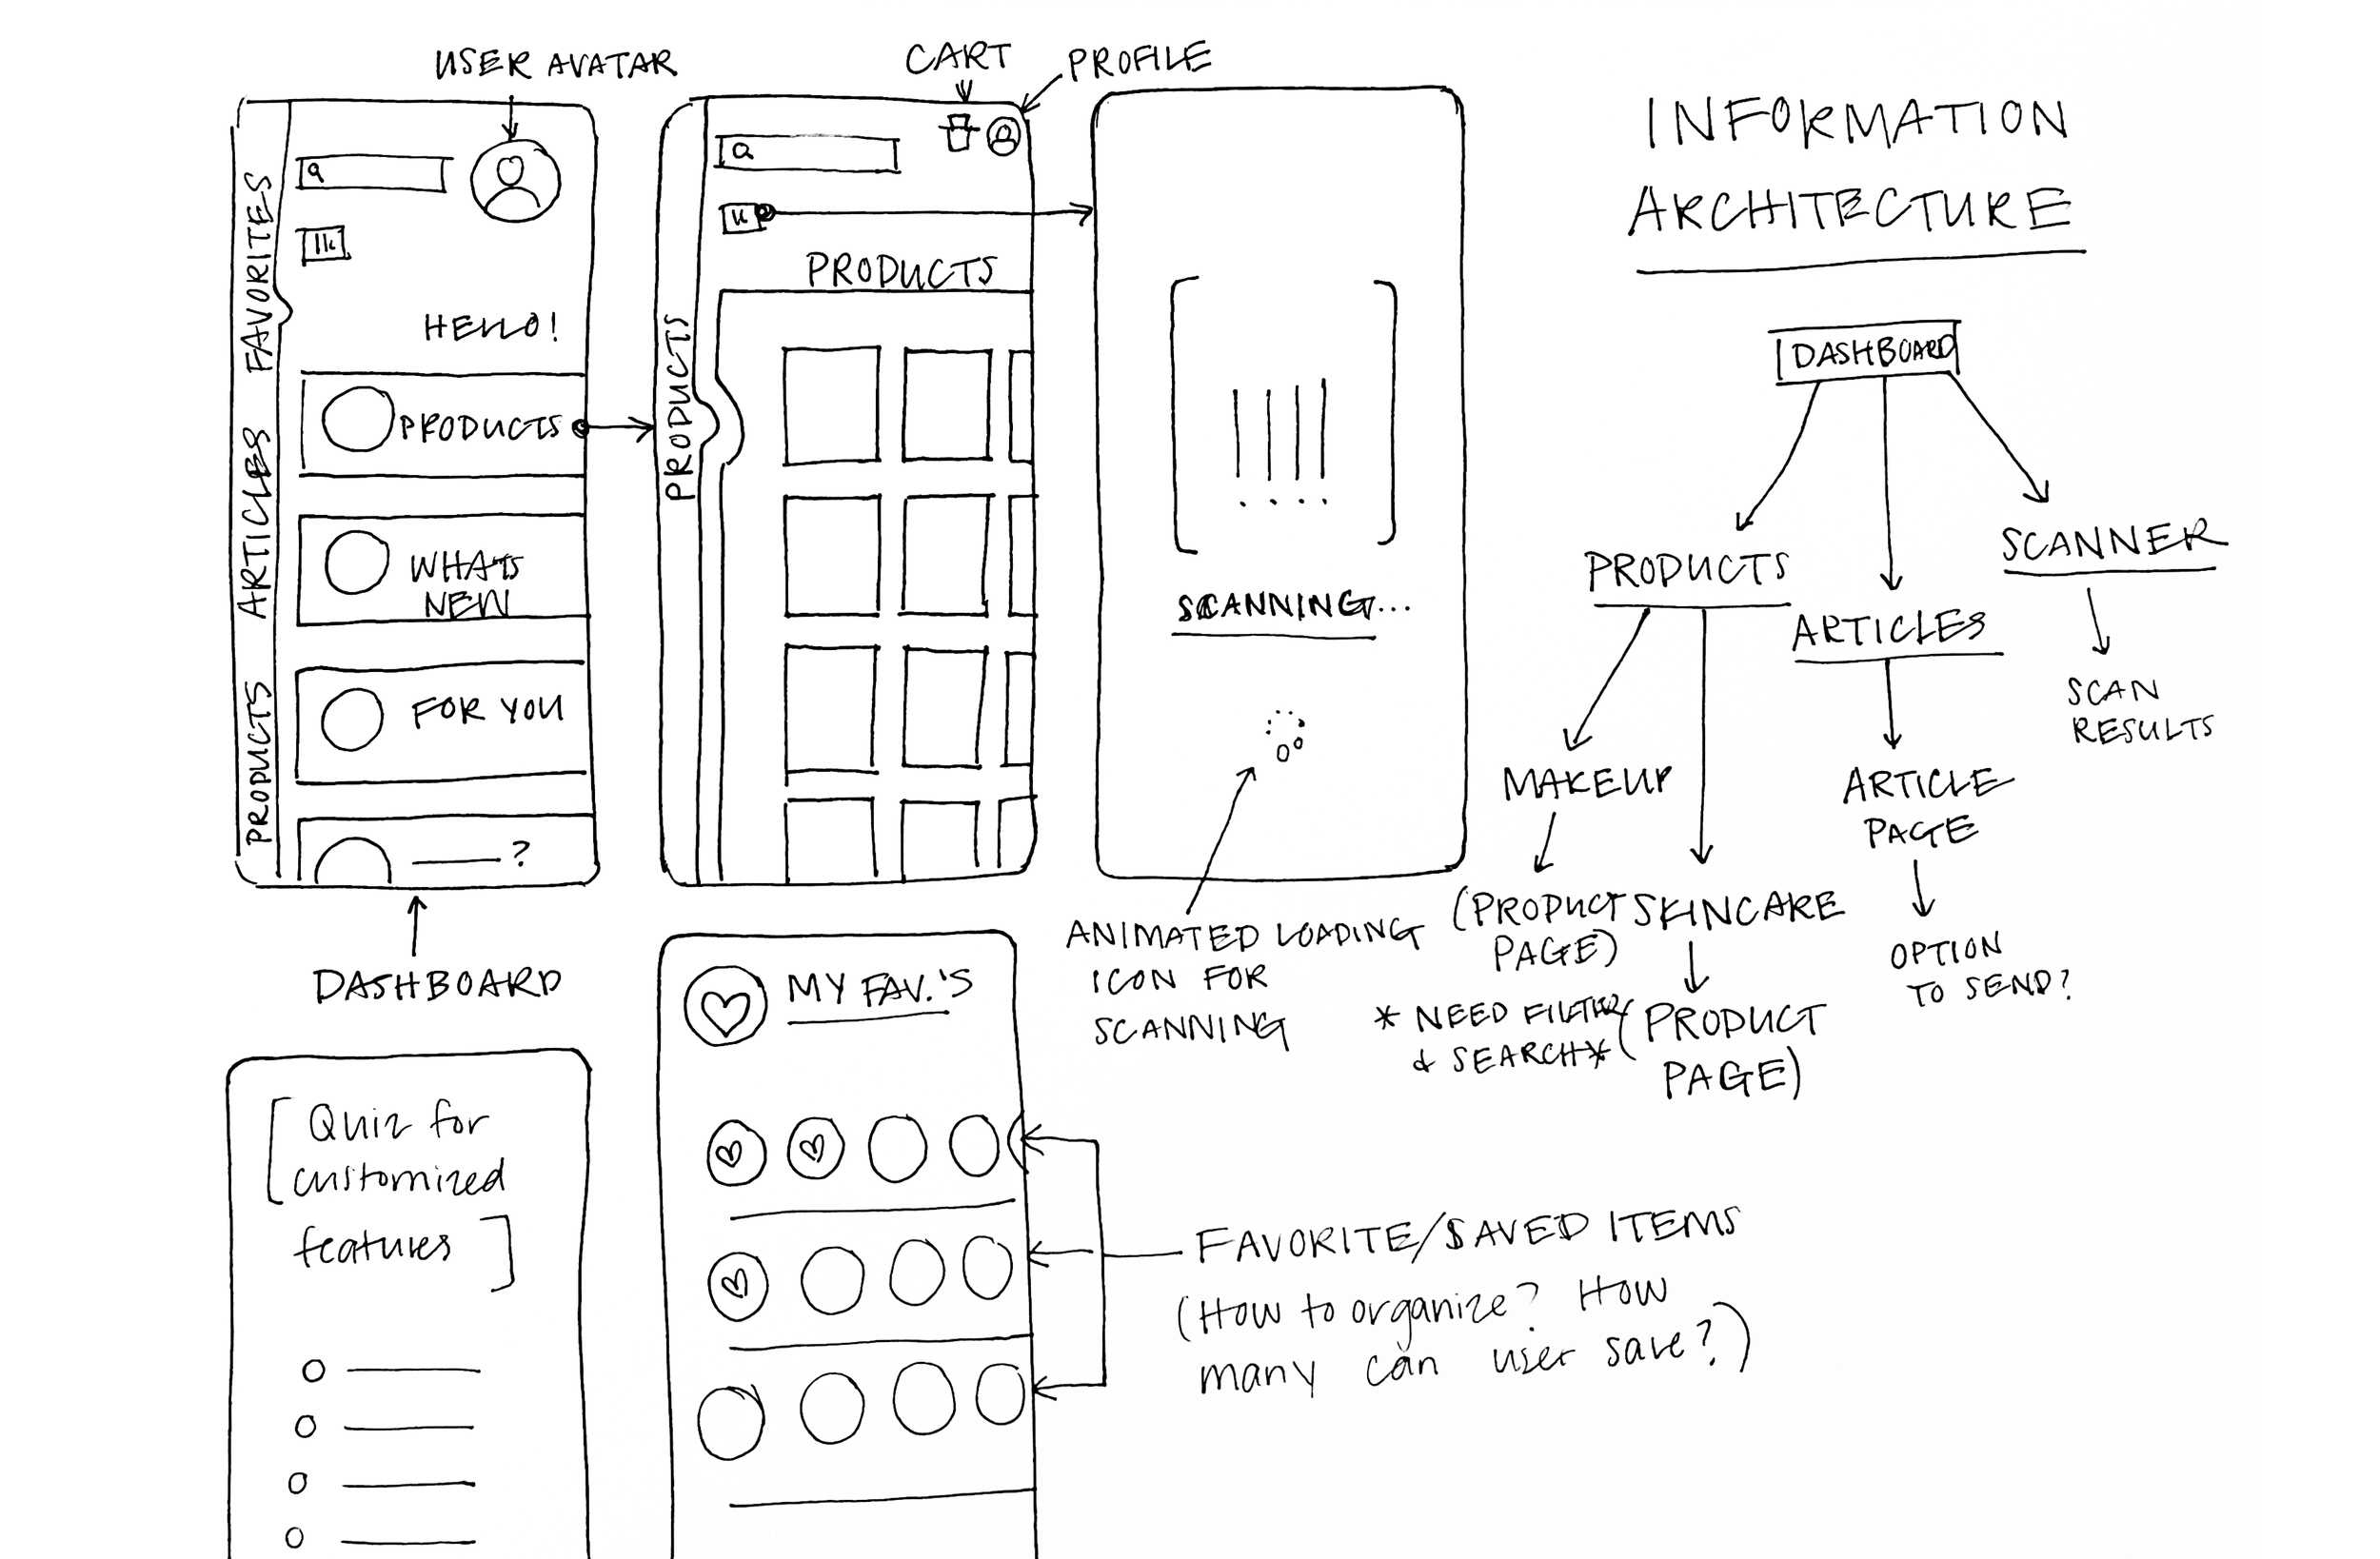 USER AVATAR
CART
PROFILE
FAVORITES
ARTICLES
PRODUCTS
HELLO!
PRODUCTS
WHATS
NEW
FOR YOU
?
DASHBOARD
PRODUCTS
PRODUCTS
SCANNING...
ANIMATED LOADING
ICON FOR
SCANNING
INFORMATION
ARCHITECTURE
DASHBOARD
PRODUCTS
ARTICLES
SCANNER
SCAN
RESULTS
MAKEUP
(PRODUCT
PAGE)
SKINCARE
(PRODUCT
PAGE)
* NEED FILTER
& SEARCH*
ARTICLE
PAGE
OPTION
TO SEND?
[Quiz for
customized
features]
MY FAV.'S
FAVORITE/SAVED ITEMS
(How to organize? How
many can user save?)